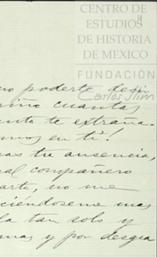 CENTRO DE
ESTUDIOS
DE HISTORIA
DE MEXICO
FUNDACIÓN
Carlos Slim
no poderte decir
cuantas
te extraña
en ti!
tre ausencia,
al compañero
arte, no me
ciéndoseme mas
la tan solo y
mas y por desgra